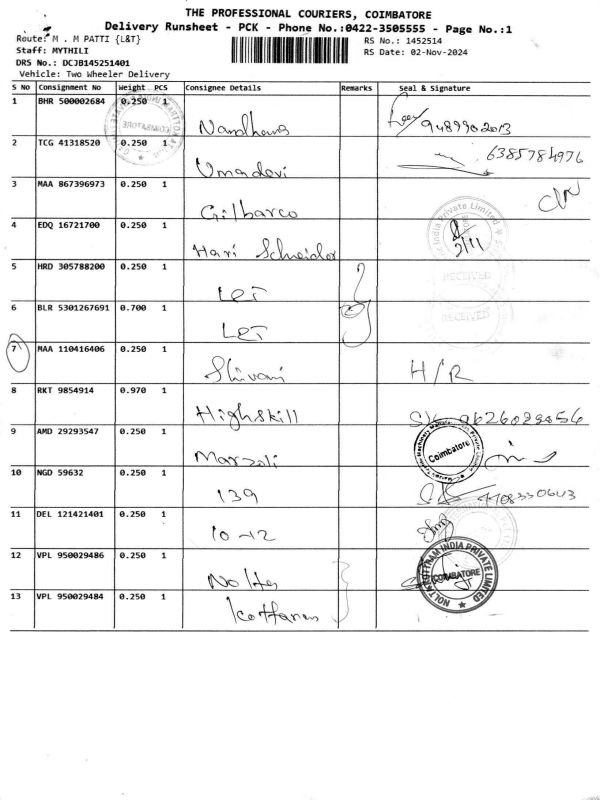 THE PROFESSIONAL COURIERS, COIMBATORE
Delivery Runsheet - PCK - Phone No.:0422-3505555 - Page No.:1
Route: M . M PATTI {L&T}
RS No.: 1452514
Staff: MYTHILI
RS Date: 02-Nov-2024
DRS No.: DCJB145251401
Vehicle: Two Wheeler Delivery
S No Consignment No Weight PCS Consignee Details Remarks Seal & Signature
1 BHR 500002684 0.250 1
9489902013
2 TCG 41318520 0.250 1 Umadevi 6385784976
3 MAA 867396973 0.250 1 Gilbarco
4 EDQ 16721700 0.250 1 Hari Schneider
5 HRD 305788200 0.250 1 L&T
6 BLR 5301267691 0.700 1 L&T
RECEIVED
7 MAA 110416406 0.250 1 Shivani H/R
8 RKT 9854914 0.970 1 Highskill 9626029856
9 AMD 29293547 0.250 1 Marzoli
Coimbatore
10 NGD 59632 0.250 1 139
11 DEL 121421401 0.250 1 10-12
12 VPL 950029486 0.250 1 Noltta
NOLTA KOTTRAM INDIA PRIVATE LIMITED
COIMBATORE
13 VPL 950029484 0.250 1